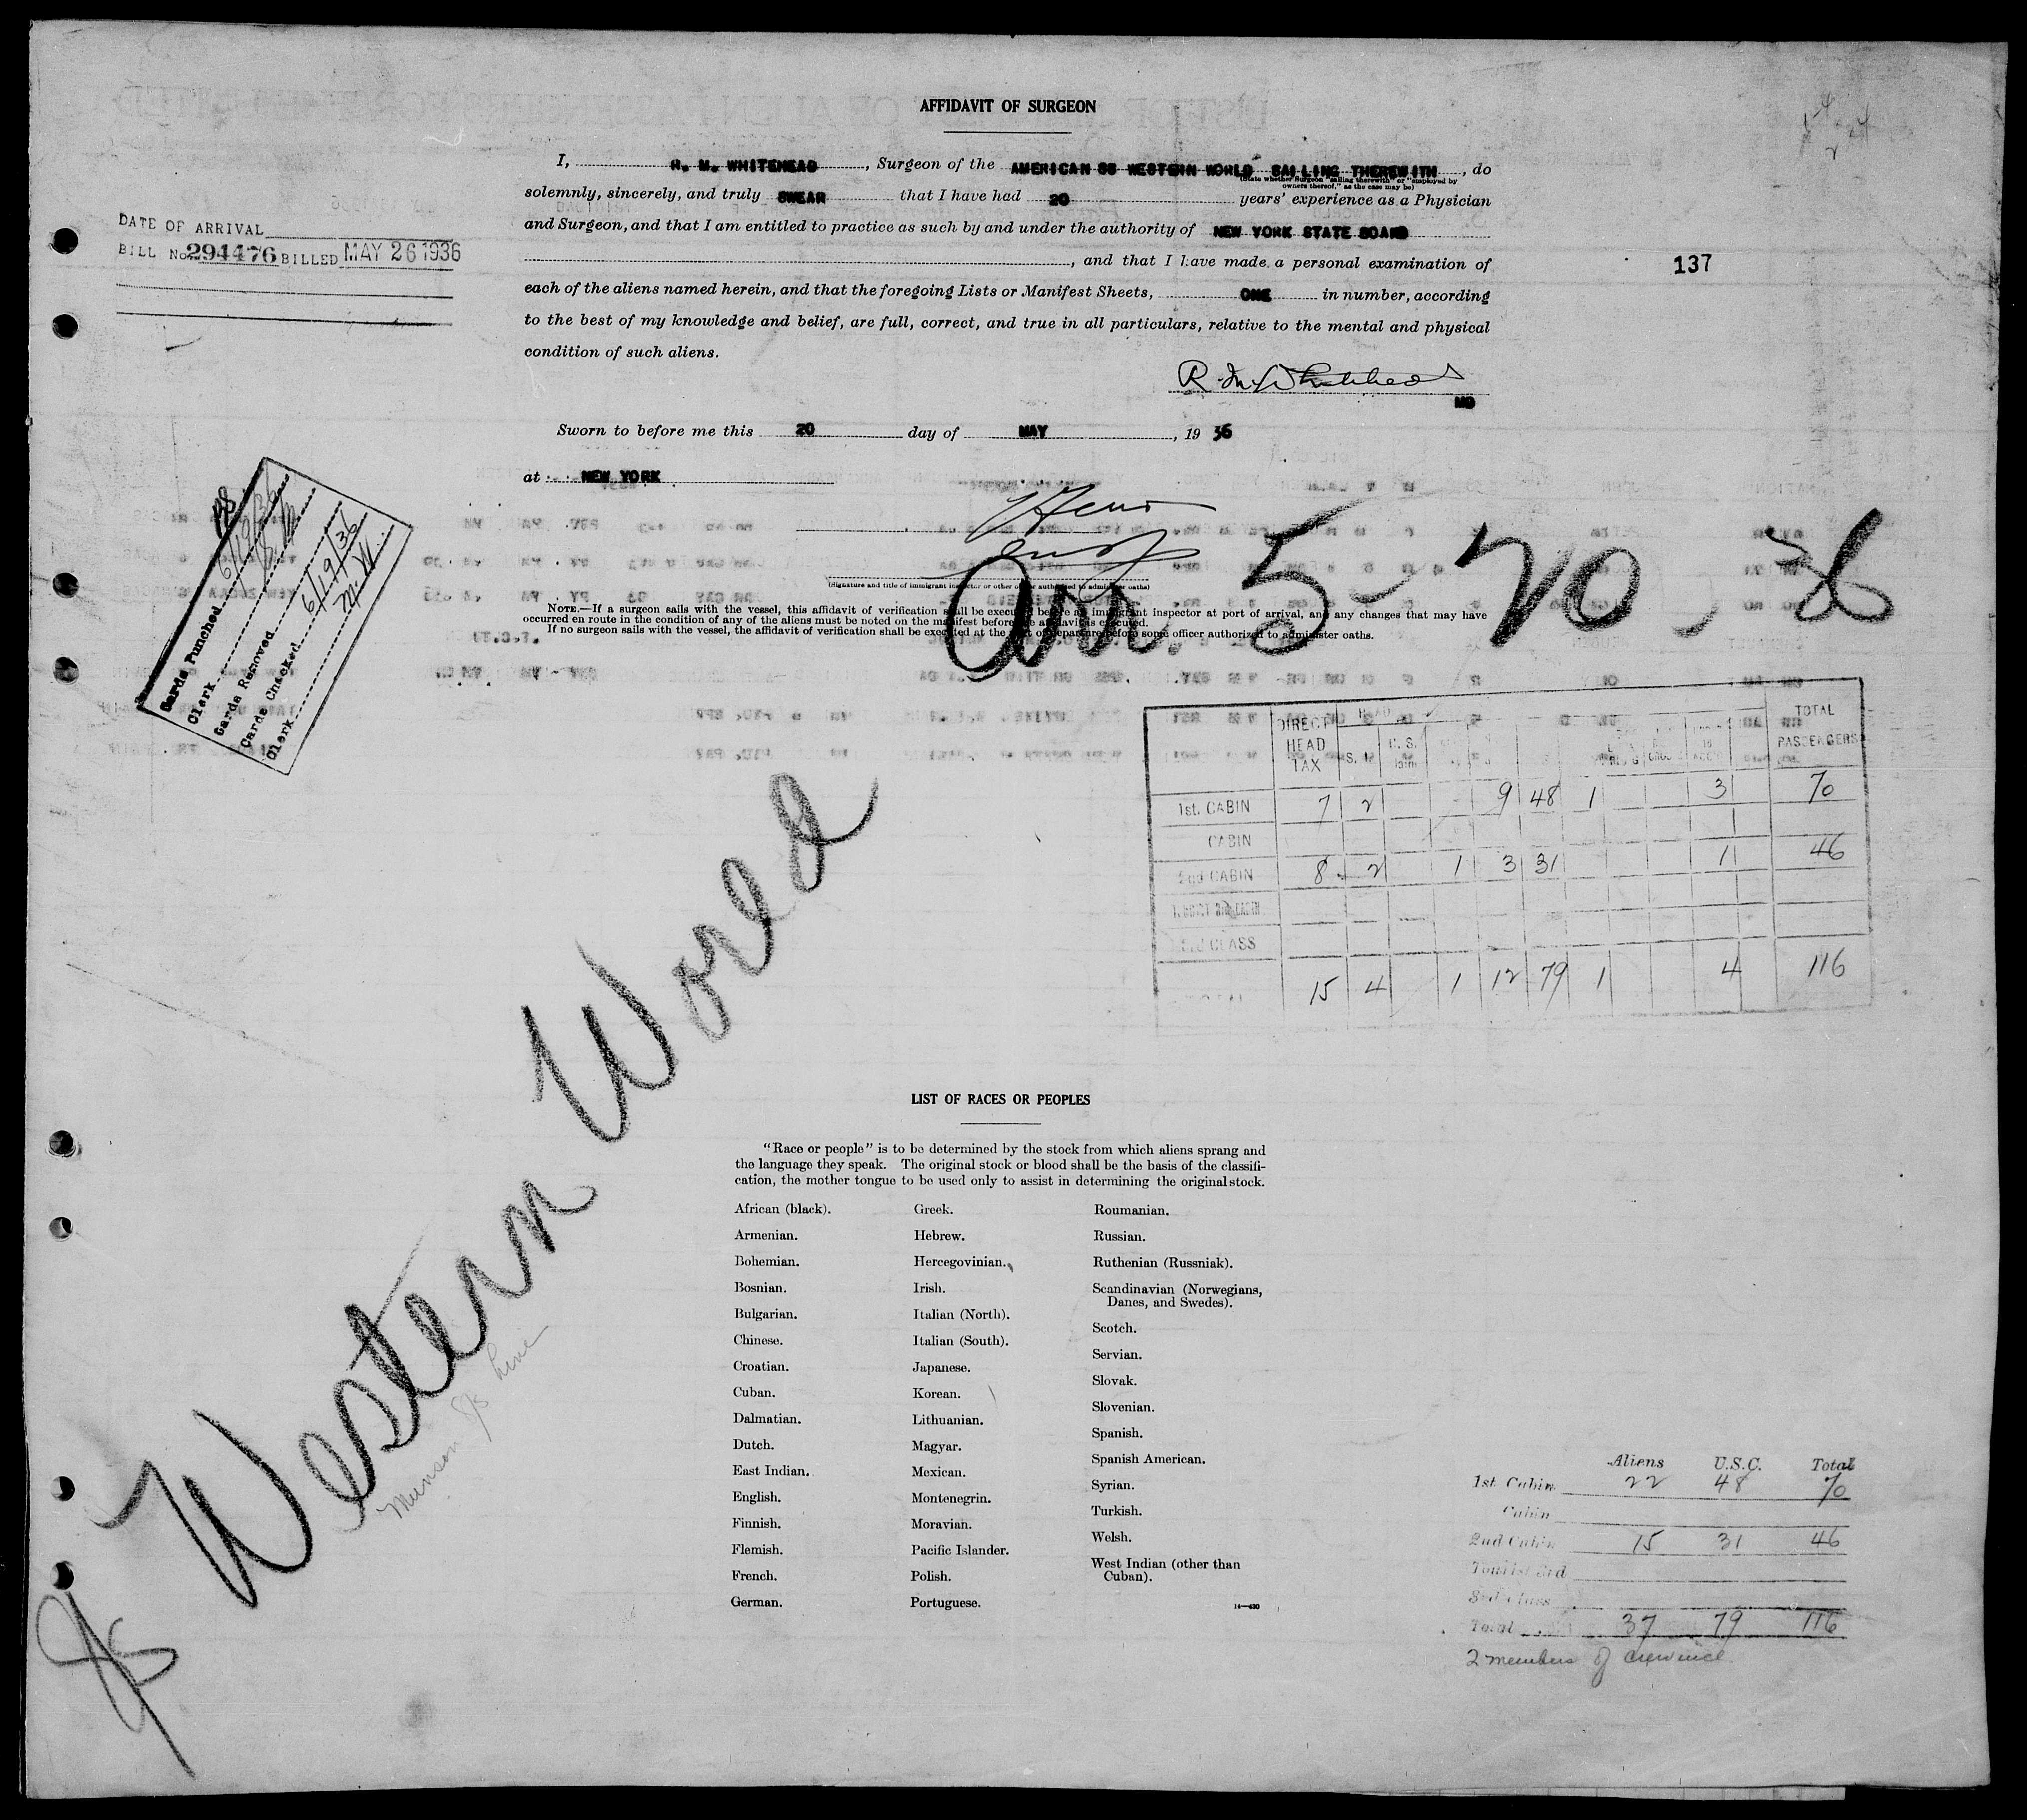 AFFIDAVIT OF SURGEON
I, R. M. WHITEHEAD, Surgeon of the AMERICAN SS WESTERN WORLD SAILING THEREWITH, do
(State whether Surgeon "sailing therewith" or "employed by
owners thereof," as the case may be)
solemnly, sincerely, and truly SWEAR that I have had 20 years' experience as a Physician
and Surgeon, and that I am entitled to practice as such by and under the authority of NEW YORK STATE BOARD
, and that I have made a personal examination of
each of the aliens named herein, and that the foregoing Lists or Manifest Sheets, ONE in number, according
to the best of my knowledge and belief, are full, correct, and true in all particulars, relative to the mental and physical
condition of such aliens.
R. M. Whitehead
MD
DATE OF ARRIVAL
BILL No. 294476 BILLED MAY 26 1936
137
Sworn to before me this 20 day of MAY, 1936
at NEW YORK
(Signature and title of immigrant inspector or other officer authorized to administer oaths)
Arr. 5-20-36
NOTE.—If a surgeon sails with the vessel, this affidavit of verification shall be executed before an immigrant inspector at port of arrival, and any changes that may have
occurred en route in the condition of any of the aliens must be noted on the manifest before the affidavit is executed.
If no surgeon sails with the vessel, the affidavit of verification shall be executed at the port of departure before some officer authorized to administer oaths.
Cards Punched 6/19/36
Clerk
Cards Removed
Cards Checked 6/19/36
Clerk M.W.
DIRECT HEAD TAX S. U. S. TOTAL PASSENGERS
1st. CABIN 7 2 9 48 1 3 70
CABIN
2nd CABIN 8 2 1 3 31 1 46
3rd CLASS
15 4 1 12 79 1 4 116
S/S Western World
Munson S/S Line
LIST OF RACES OR PEOPLES
"Race or people" is to be determined by the stock from which aliens sprang and
the language they speak. The original stock or blood shall be the basis of the classifi-
cation, the mother tongue to be used only to assist in determining the original stock.
African (black).
Armenian.
Bohemian.
Bosnian.
Bulgarian.
Chinese.
Croatian.
Cuban.
Dalmatian.
Dutch.
East Indian.
English.
Finnish.
Flemish.
French.
German.
Greek.
Hebrew.
Hercegovinian.
Irish.
Italian (North).
Italian (South).
Japanese.
Korean.
Lithuanian.
Magyar.
Mexican.
Montenegrin.
Moravian.
Pacific Islander.
Polish.
Portuguese.
Roumanian.
Russian.
Ruthenian (Russniak).
Scandinavian (Norwegians,
Danes, and Swedes).
Scotch.
Servian.
Slovak.
Slovenian.
Spanish.
Spanish American.
Syrian.
Turkish.
Welsh.
West Indian (other than
Cuban).
14—430
Aliens U.S.C. Total
1st Cabin 22 48 70
Cabin
2nd Cabin 15 31 46
Tourist 3rd
3rd Class
Total 37 79 116
2 members of crew incl.